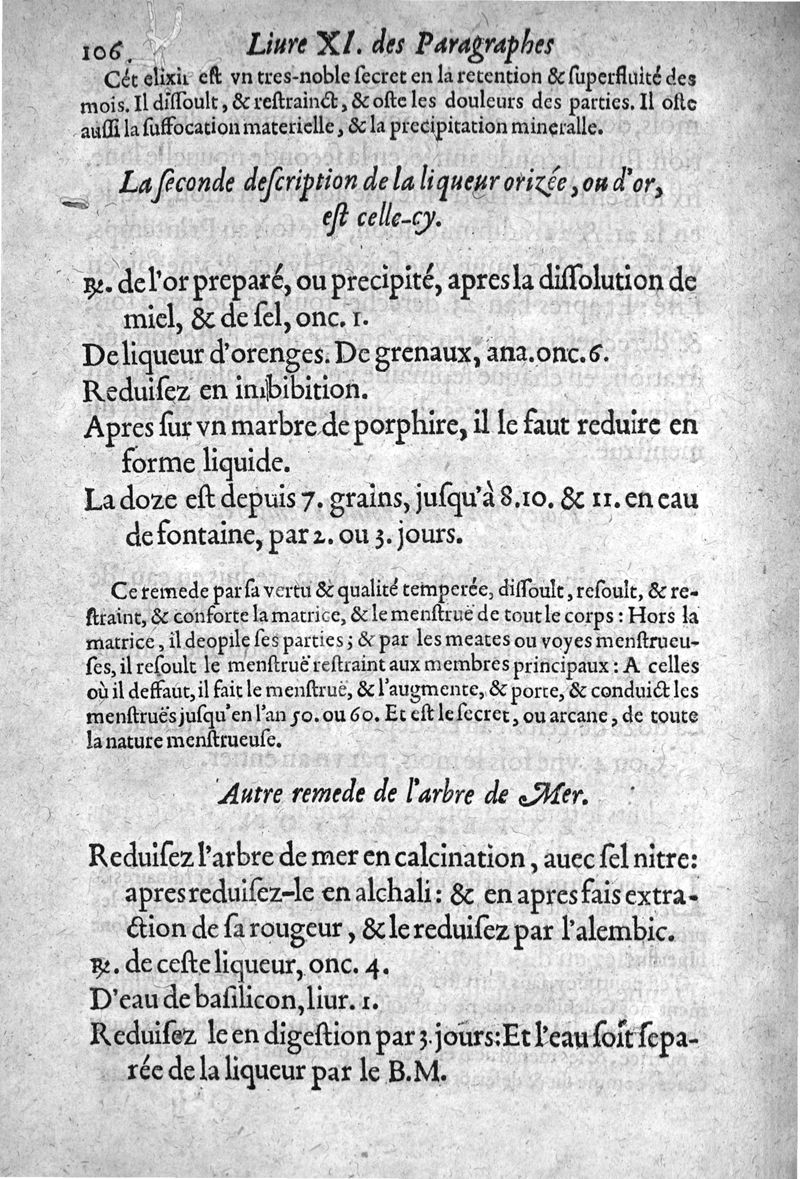 106. Liure XI. des Paragraphes
Cét elixir eſt vn tres-noble ſecret en la retention & ſuperfluité des
mois. Il diſſoult, & reſtrainct, & oſte les douleurs des parties. Il oſte
auſſi la ſuffocation materielle, & la precipitation mineralle.
La ſeconde deſcription de la liqueur orizée, ou d'or,
eſt celle-cy.
℞. de l'or preparé, ou precipité, apres la diſſolution de
miel, & de ſel, onc. 1.
De liqueur d'orenges. De grenaux, ana. onc. 6.
Reduiſez en imbibition.
Apres ſur vn marbre de porphire, il le faut reduire en
forme liquide.
La doze eſt depuis 7. grains, juſqu'à 8. 10. & 11. en eau
de fontaine, par 2. ou 3. jours.
Ce remede par ſa vertu & qualité temperée, diſſoult, reſoult, & re-
ſtraint, & conforte la matrice, & le menſtruë de tout le corps : Hors la
matrice, il deopile ſes parties ; & par les meates ou voyes menſtrueu-
ſes, il reſoult le menſtruë reſtraint aux membres principaux : A celles
où il deffaut, il fait le menſtruë, & l'augmente, & porte, & conduict les
menſtruës juſqu'en l'an 50. ou 60. Et eſt le ſecret, ou arcane, de toute
la nature menſtrueuſe.
Autre remede de l'arbre de Mer.
Reduiſez l'arbre de mer en calcination, auec ſel nitre:
apres reduiſez-le en alchali : & en apres fais extra-
ction de ſa rougeur, & le reduiſez par l'alembic.
℞. de ceſte liqueur, onc. 4.
D'eau de baſilicon, liur. 1.
Reduiſez le en digeſtion par 3. jours: Et l'eau ſoit ſepa-
rée de la liqueur par le B.M.